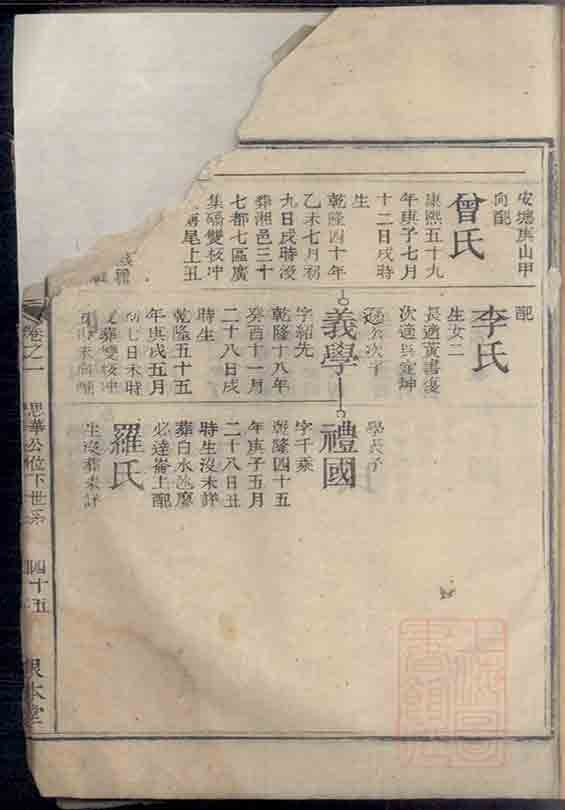 安塘庚山甲
向配
曾氏
康熙五十九
年庚子七月
十二日戌時
生
乾隆四十年
乙未七月初
九日戌時沒
葬湘邑三十
七都七區廣
集橋雙校冲
尾上丑
配
李氏
生女二
長適黃書俊
次適吳定坤
公次子
義學
字紹先
乾隆十八年
癸酉十一月
二十八日戌
時生
乾隆五十五
年庚戌五月
初七日未時
葬雙校冲
學長子
禮國
字千乘
乾隆四十五
年庚子五月
二十八日丑
時生沒未詳
葬白水
必達崙上配
羅氏
生沒葬未詳
卷之一
思華公位下世系
四十五
根本堂
上海圖
書館藏